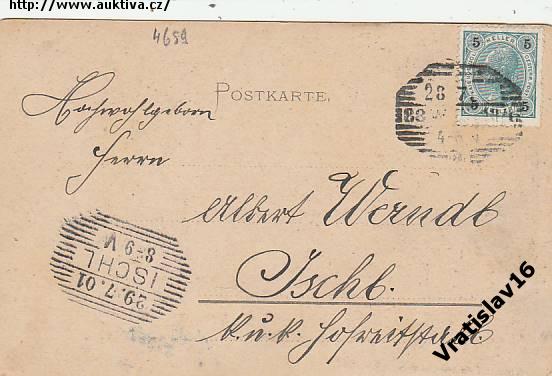 http://www.auktiva.cz/
4659
POSTKARTE.
5 HELLER 5
28 7
Hochwohlgeboren
Herrn
Albert Werndl
Ischl.
k.u.k. Hofreitstall
29.7.01
ISCHL
8-9 V
Vratislav16